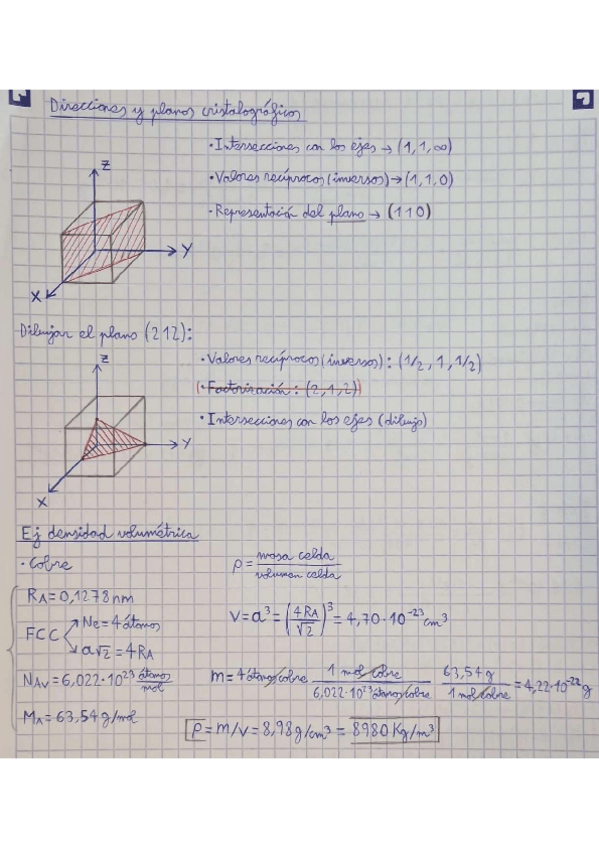 Direcciones y planos cristalográficos
· Intersecciones con los ejes → (1, 1, ∞)
· Valores recíprocos (inversos) → (1, 1, 0)
· Representación del plano → (110)
Z
Y
X
Dibujar el plano (212):
· Valores recíprocos (inversos): (1/2, 1, 1/2)
(· Factorización: (2, 1, 2))
· Intersecciones con los ejes (dibujo)
Z
Y
X
Ej densidad volumétrica
· Cobre
ρ = masa celda / volumen celda
RA = 0,1278 nm
FCC
Ne = 4 átomos
a√2 = 4RA
V = a³ = (4RA/√2)³ = 4,70·10⁻²³ cm³
NAV = 6,022·10²³ átomos/mol
m = 4 átomos cobre · 1 mol cobre / 6,022·10²³ átomos cobre · 63,54 g / 1 mol cobre = 4,22·10⁻²² g
MA = 63,54 g/mol
ρ = m/V = 8,98 g/cm³ = 8980 Kg/m³